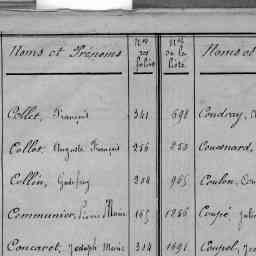 Noms et Prénoms Nos des folios Nos de la liste Noms et
Collet, François 341 698 Coudray,
Collet Auguste François 256 250 Couesnard,
Collin, Godefroy 204 965 Coulon,
Communier, Pierre Marie 165 1256 Coupé Jul
Concaret, Joseph Marie 314 1691 Coupel,